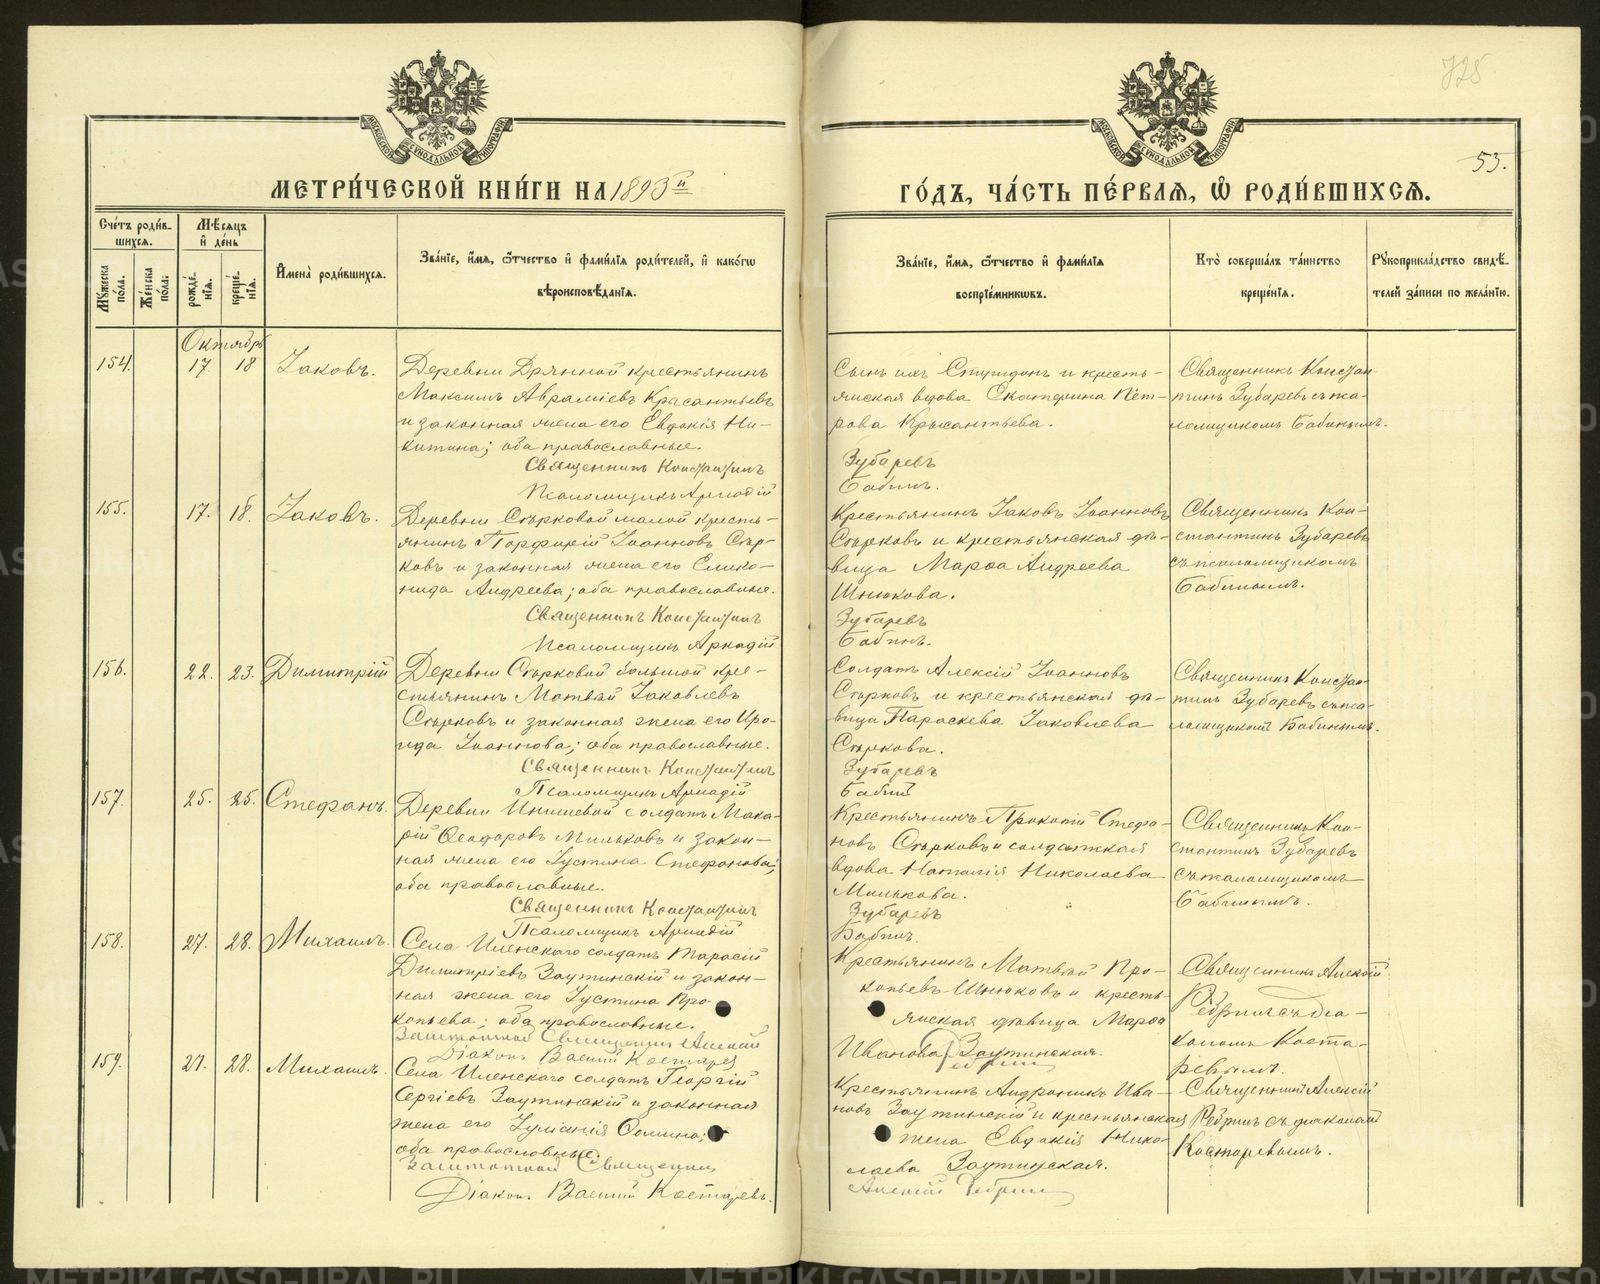 725
53.
МОСКОВСКОЙ СѴНОДАЛЬНОЙ ТИПОГРАФІИ
МОСКОВСКОЙ СѴНОДАЛЬНОЙ ТИПОГРАФІИ
МЕТРИ́ЧЕСКОЙ КНИ́ГИ НА 1893й ГО́ДЪ, ЧА́СТЬ ПЕ́РВАѦ, Ѽ РОДИ́ВШИХСѦ.
Сче́тъ роди́вшихсѧ.
Мꙋ́жеска по́ла.
Же́нска по́ла.
Мѣ́сѧцъ и҆ де́нь
рожде́нїѧ.
креще́нїѧ.
И҆мена̀ роди́вшихсѧ.
Зва́нїе, и҆́мѧ, ѻ҆́тчество и҆ фами́лїѧ роди́телей, и҆ како́гѡ
вѣроисповѣ́данїѧ.
Зва́нїе, и҆́мѧ, ѻ҆́тчество и҆ фами́лїѧ
воспрїе́мникѡвъ.
Кто̀ соверша́лъ та́инство
креще́нїѧ.
Рꙋкоприкла́дство свидѣ́-
телей за́писи по жела́нїю.
Октябрь
154. 17 18 Іаковъ.
Деревни Дрянной крестьянинъ
Максимъ Авраміевъ Крысантьевъ
и законная жена его Евдокія Ни-
китина; оба православные.
Священникъ Константинъ Зубаревъ
Псаломщикъ Аркадій Бабинъ.
Сынъ ихъ Спиридонъ и кресть-
янская вдова Екатерина Пет-
рова Крысантьева.
Священникъ Констан-
тинъ Зубаревъ съ пса-
ломщикомъ Бабинымъ.
155. 17. 18. Іаковъ.
Деревни Стѣрковой малой кресть-
янинъ Порфирій Іоанновъ Стѣр-
ковъ и законная жена его Елико-
нида Андреева; оба православные.
Священникъ Константинъ Зубаревъ
Псаломщикъ Аркадій Бабинъ.
Крестьянинъ Іаковъ Іоанновъ
Стѣрковъ и крестьянская дѣ-
вица Марѳа Андреева
Шнюкова.
Священникъ Кон-
стантинъ Зубаревъ
съ псаломщикомъ
Бабинымъ.
156. 22. 23. Димитрій
Деревни Стѣрковой большой кре-
стьянинъ Матвѣй Іаковлевъ
Стѣрковъ и законная жена его Иро-
ида Іоаннова; оба православные.
Священникъ Константинъ Зубаревъ
Псаломщикъ Аркадій Бабинъ
Солдатъ Алексій Іоанновъ
Стѣрковъ и крестьянская дѣ-
вица Параскева Іаковлева
Стѣркова.
Священникъ Констан-
тинъ Зубаревъ съ пса-
ломщикомъ Бабинымъ.
157. 25. 25. Стефанъ.
Деревни Инишевой солдатъ Мака-
рій Ѳеодоровъ Мильковъ и закон-
ная жена его Іустина Стефанова;
оба православные.
Священникъ Константинъ Зубаревъ
Псаломщикъ Аркадій Бабинъ.
Крестьянинъ Прокопій Стефа-
новъ Стѣрковъ и солдатская
вдова Наталія Николаева
Милькова.
Священникъ Кон-
стантинъ Зубаревъ
съ псаломщикомъ
Бабинымъ.
158. 27. 28. Михаилъ.
Села Иленскаго солдатъ Тарасій
Димитріевъ Заутинскій и закон-
ная жена его Іустина Про-
копьева; оба православные.
Заштатной Священникъ Алексій Ребринъ
Діаконъ Василій Костаревъ
Крестьянинъ Матвѣй Про-
копьевъ Шнюковъ и кресть-
янская дѣвица Марѳа
Иванова Заутинская.
Священникъ Алексій
Ребринъ съ діа-
кономъ Коста-
ревымъ.
159. 27. 28. Михаилъ.
Села Иленскаго солдатъ Георгій
Сергіевъ Заутинскій и законная
жена его Іуліанія Ѳомина;
оба православные.
Заштатной Священникъ Алексій Ребринъ
Діаконъ Василій Костаревъ.
Крестьянинъ Андроникъ Ива-
новъ Заутинскій и крестьянская
жена Евдокія Нико-
лаева Заутинская.
Священникъ Алексій
Ребринъ съ діакономъ
Костаревымъ.
METRIKI.GASO-URAL.RU